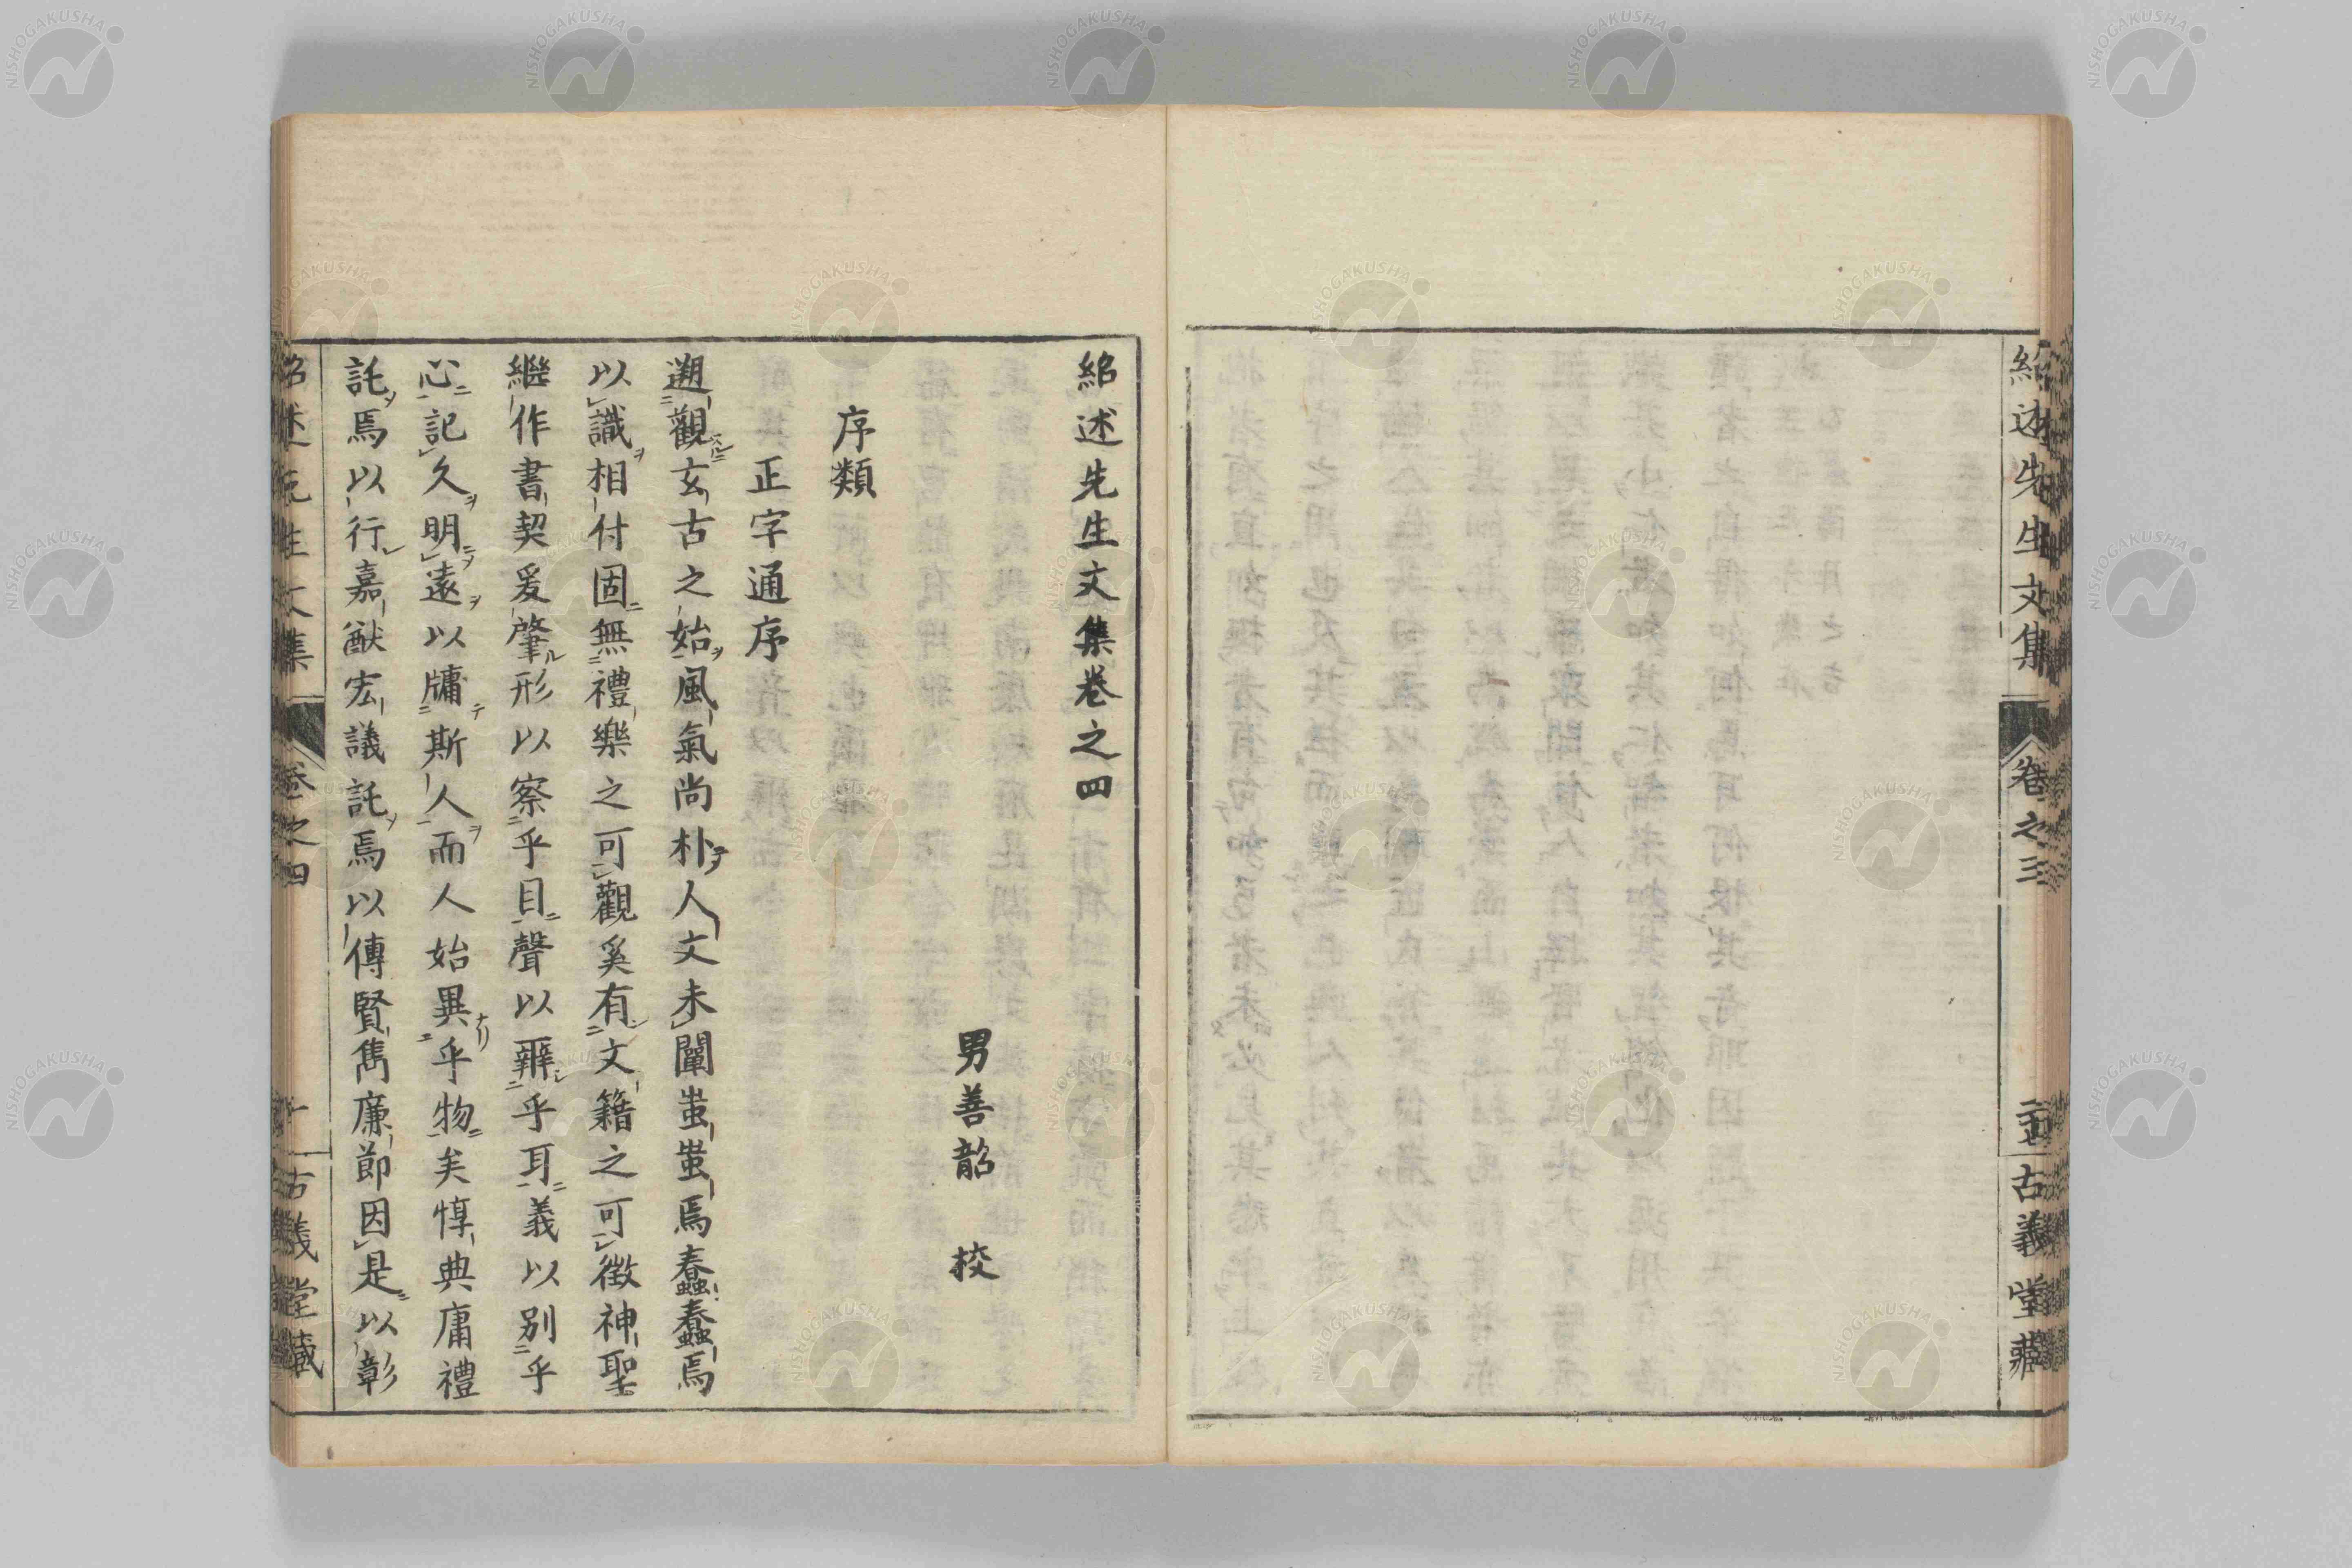 紹述先生文集 卷之三 古義堂藏
紹述先生文集卷之四
男善韶 校
序類
正字通序
遡觀玄古之始風氣尚朴人文未闡蚩蚩焉蠢蠢焉
以識相付固無禮樂之可觀奚有文籍之可徵神聖
繼作書契爰肇形以察乎目聲以辨乎耳義以別乎
心記久明遠以牖斯人而人始異乎物矣惇典庸禮
託焉以行嘉猷宏議託焉以傳賢雋廉節因是以彰
紹述先生文集 卷之四 一 古義堂藏